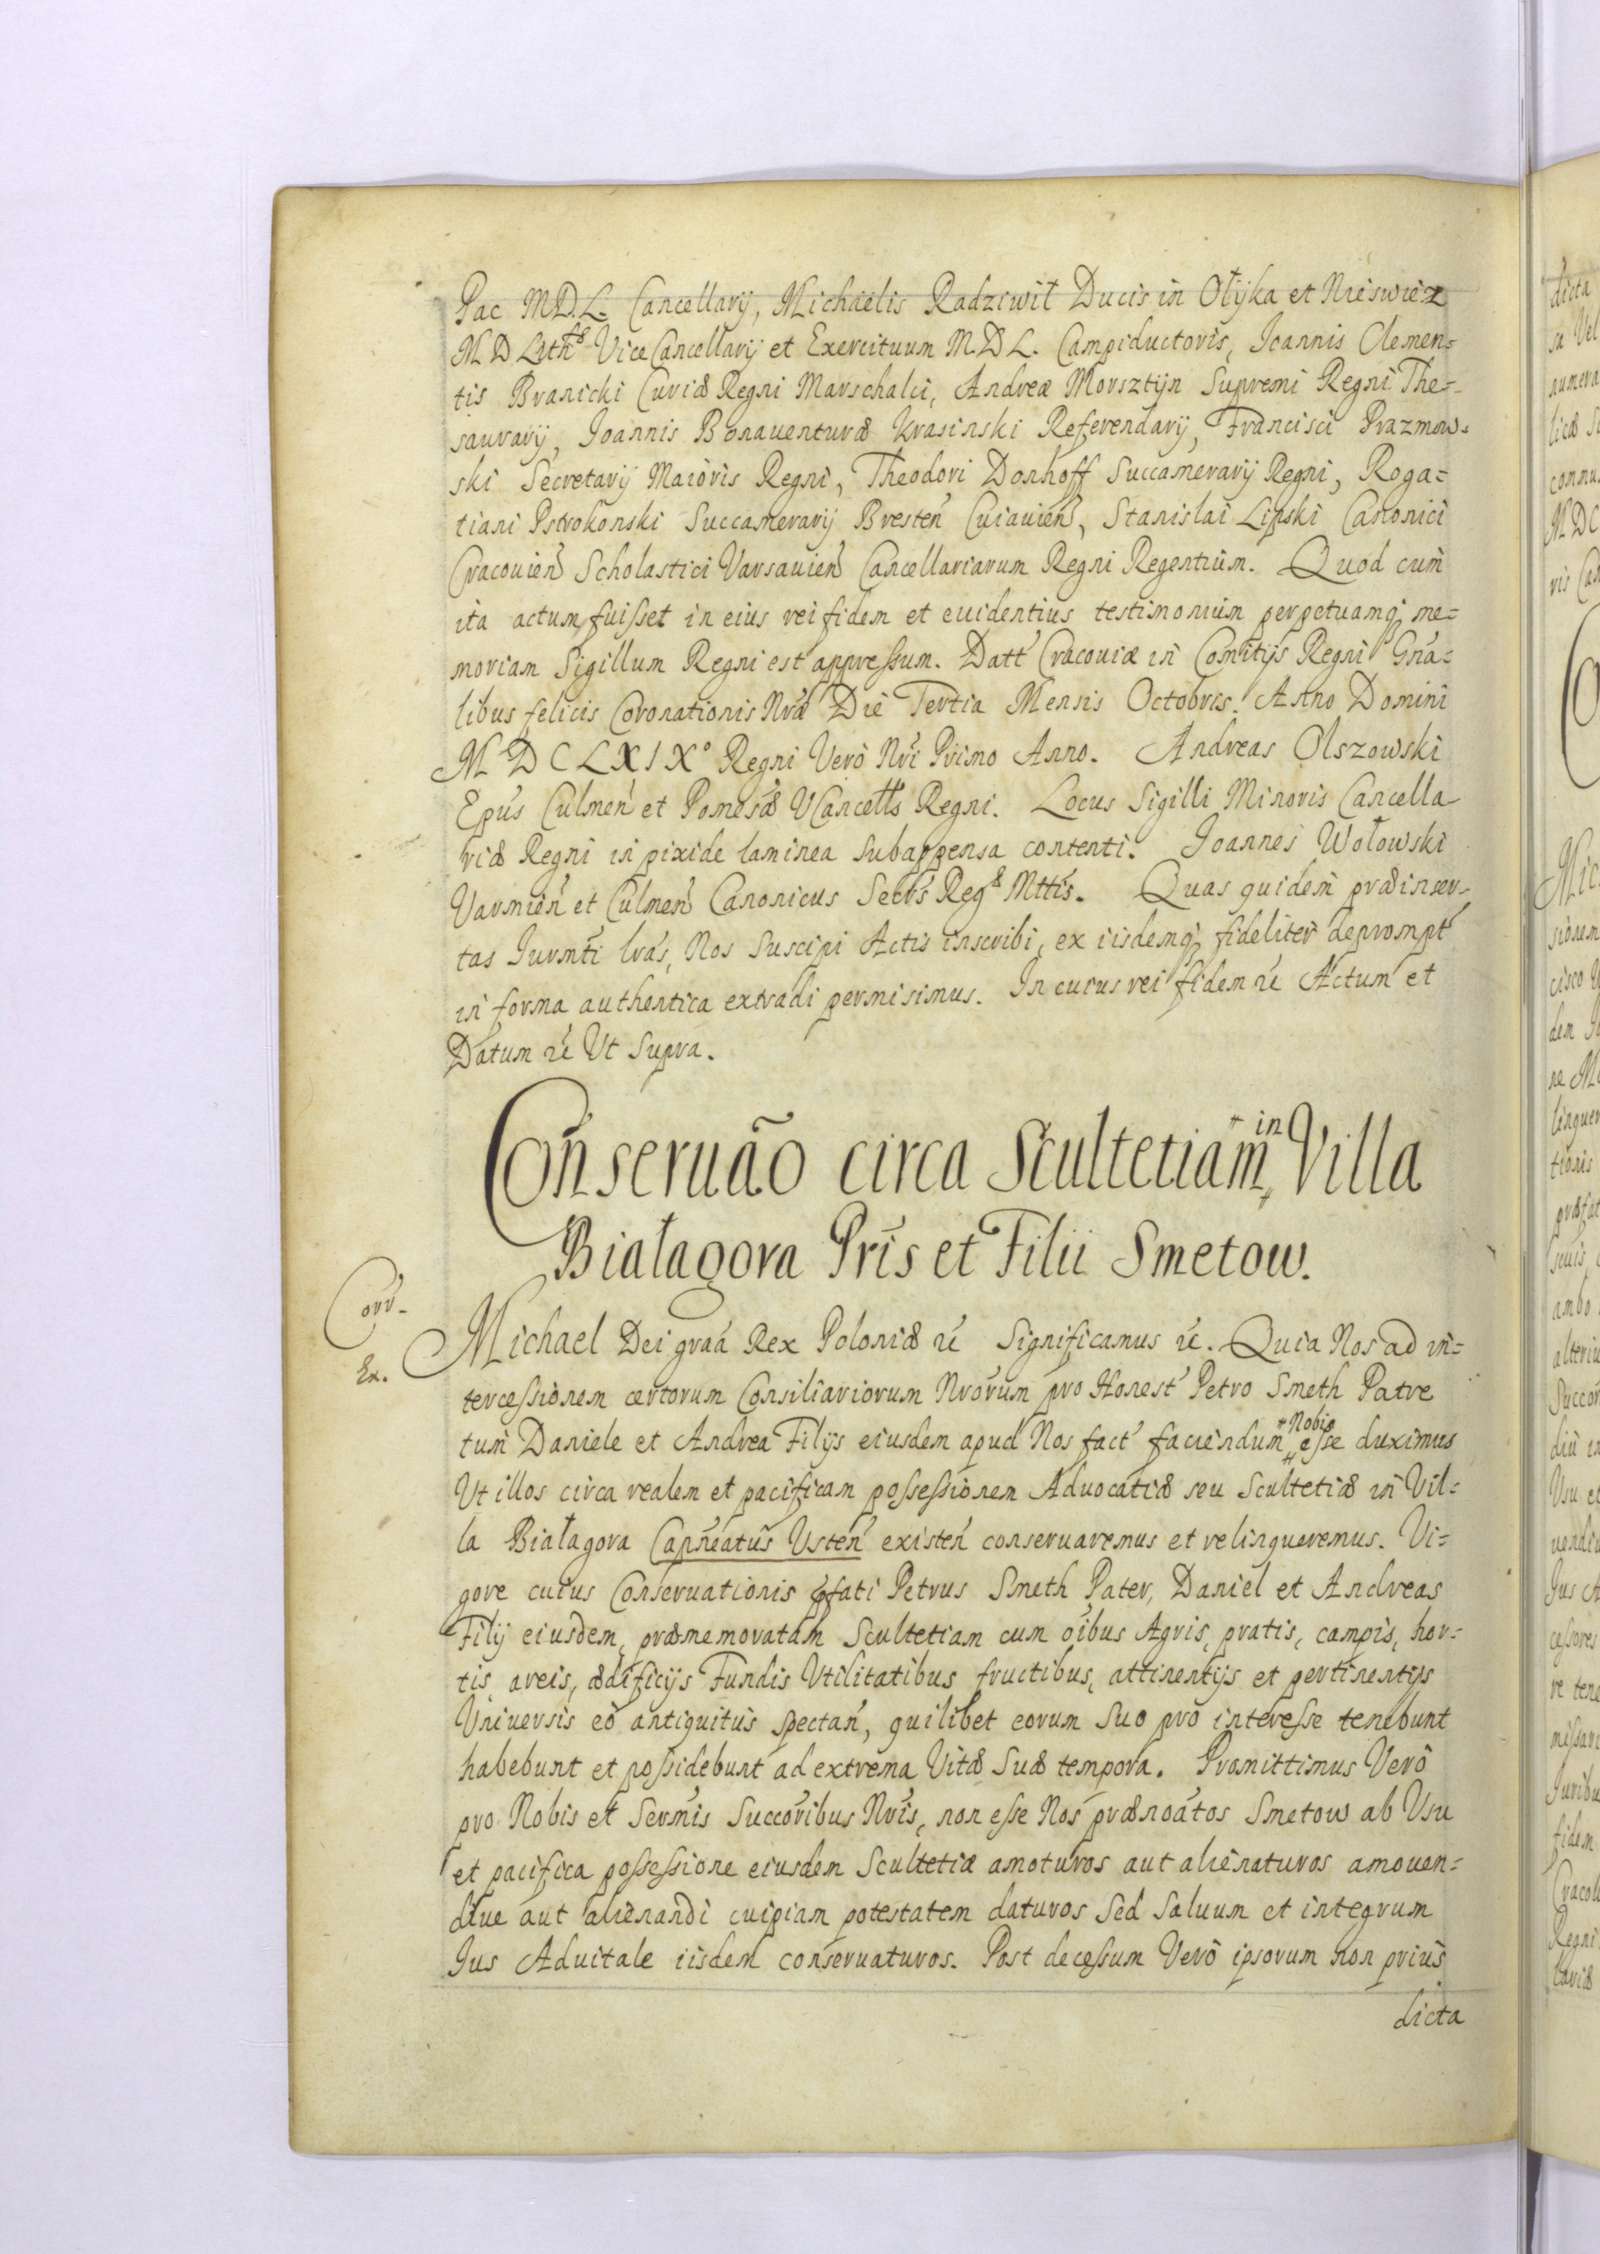 Pac M.D.L. Cancellarij, Michaelis Radziwił Ducis in Ołyka et Nieswiez
M D Lithæ Vice Cancellarij et Exercituum M.D L. Campiductoris, Ioannis Clemen=
tis Branicki Curiæ Regni Marschalci, Andreæ Morsztyn Supremi Regni The=
saurarij, Joannis Bonauenturæ Krasinski Referendarij, Francisci Prazmow=
ski Secretarij Maioris Regni, Theodori Donhoff Succamerarij Regni, Roga=
tiani Pstrokonski Succamerarij Bresteñ Cuiauieñ, Stanislai Lipski Canonici
Cracouieñ Scholastici Varsauieñ Cancellariarum Regni Regentium. Quod cum
ita actum fuisset in eius rei fidem et euidentius testimonium perpetuamq; me=
moriam Sigillum Regni est appressum. Datt Cracouiæ in Comitijs Regni Gña=
libus felicis Coronationis Nræ Die Tertia Mensis Octobris. Anno Domini
M D C L X I X° Regni Verò Nri Primo Anno. Andreas Olszowski
Epus Culmeñ et Pomesæ VCancells Regni. Locus Sigilli Minoris Cancella
riæ Regni in pixide laminea subappensa contenti. Joannes Wołowski
Varmieñ et Culmeñ Canonicus Secrs Regæ Mttis. Quas quidem præinser=
tas Jurmti lras, Nos suscipi Actis inscribi, ex iisdemq; fideliter depromptˊ
in forma authentica extradi permisimus. In cuius rei fidem ꝛc Actum et
Datum ꝛc Ut supra.
Conseruão circa Scultetiam in Villa
Białagora Pris et Filii Smetow.
Corr.
Ex.
Michael Dei graa Rex Poloniæ ꝛc Significamus ꝛc. Quia Nos ad in=
tercessionem certorum Consiliariorum Nrorum pro Honestˊ Petro Smeth Patre
tum Daniele et Andrea Filijs eiusdem apud Nos factˊ faciendum Nobis esse duximus
Ut illos circa realem et pacificam possessionem Aduocatiæ seu Scultetiæ in Vil=
la Białagora Capneatus Usteñ existeñ conseruaremus et relinqueremus. Vi=
gore cuius Conseruationis pfati Petrus Smeth Pater, Daniel et Andreas
Filij eiusdem, præmemoratam Scultetiam cum oibus Agris, pratis, campis, hor=
tis, areis, ædificijs Fundis Utilitatibus fructibus, attinentijs et pertinentijs
Uniuersis eò antiquitus spectañ, quilibet eorum suo pro interesse tenebunt
habebunt et possidebunt ad extrema Vitæ Suæ tempora. Promittimus Verò
pro Nobis et Sermis Succoribus Nris, non esse Nos prænoatos Smetow ab Usu
et pacifica possessione eiusdem Scultetiæ amoturos aut alienaturos amouen=
diue aut alienandi cuipiam potestatem daturos Sed Saluum et integrum
Jus Aduitale iisdem conseruaturos. Post decessum Verò ipsorum non prius
dicta